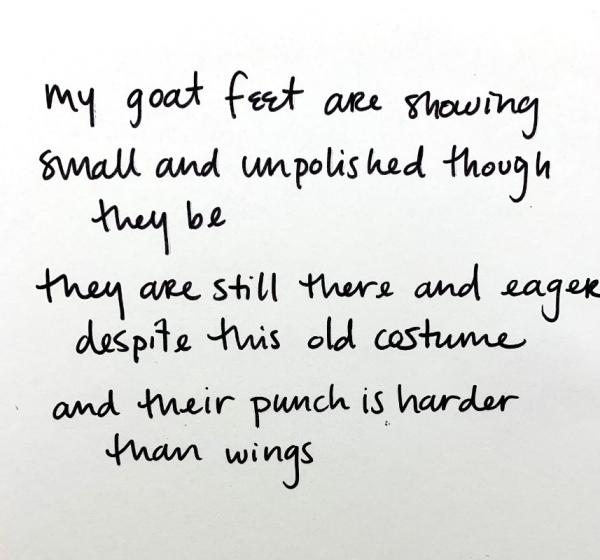 my goat feet are showing
small and unpolished though
they be
they are still there and eager
despite this old costume
and their punch is harder
than wings